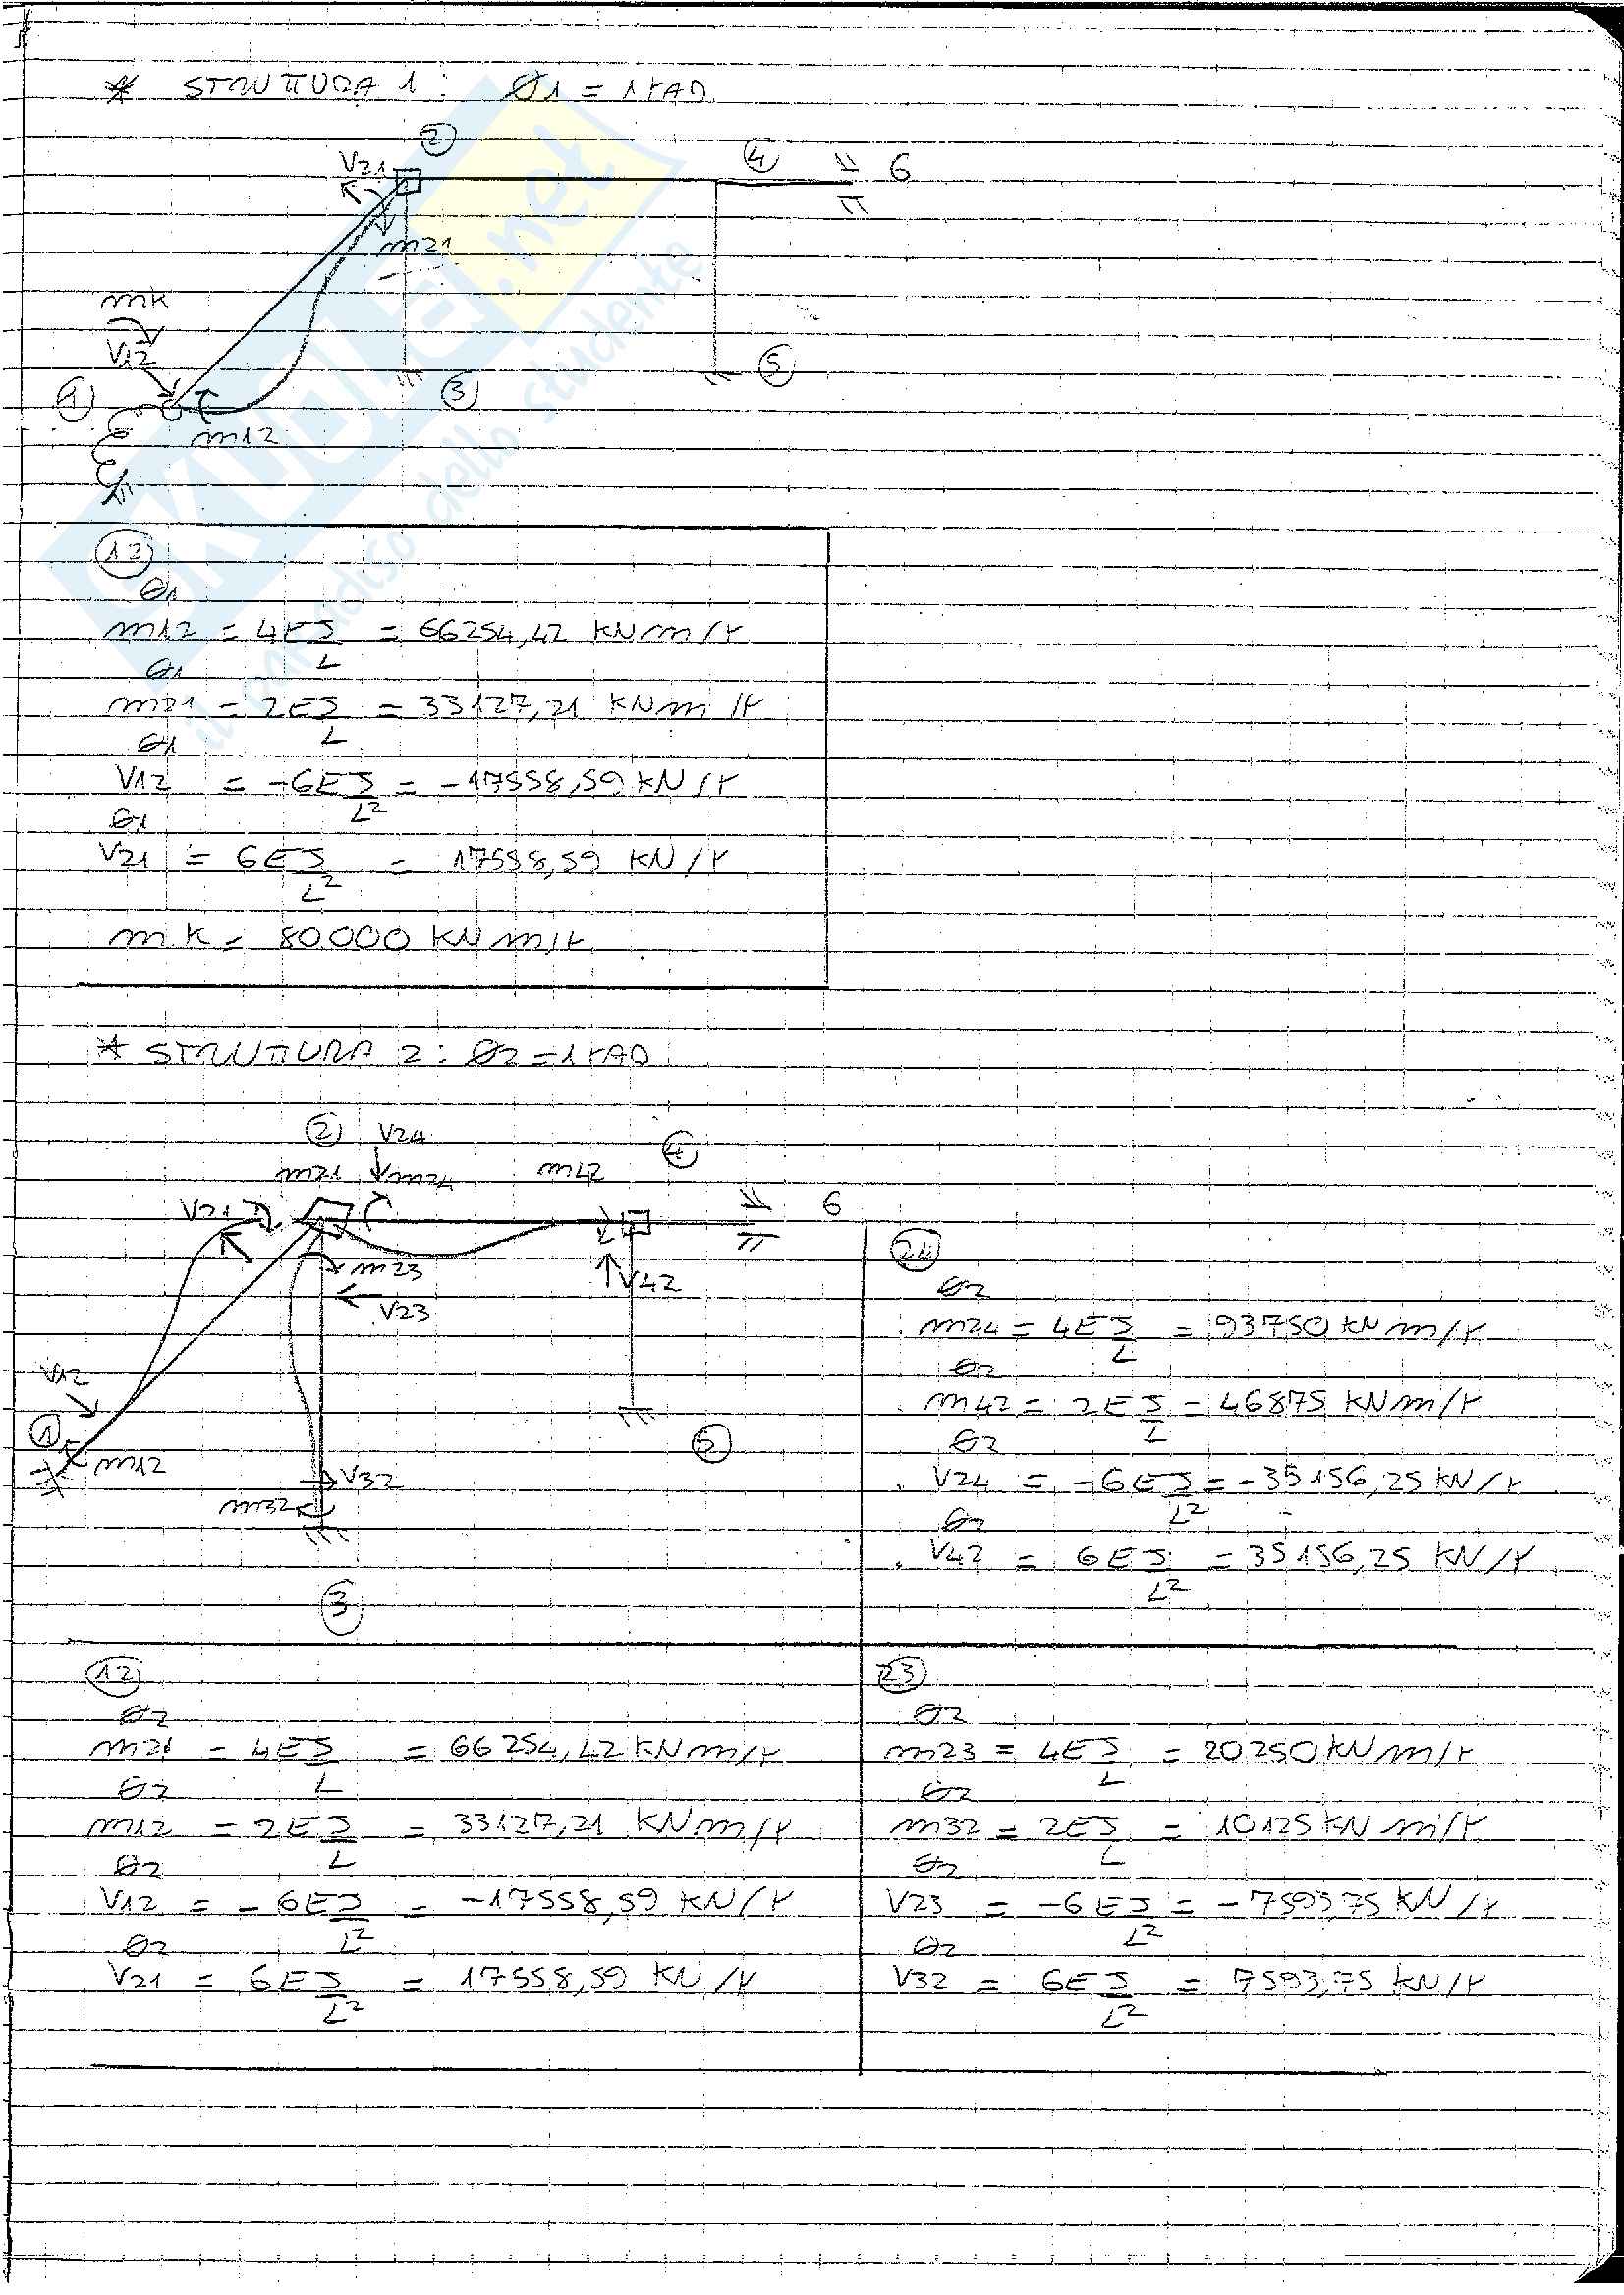 * STRUTTURA 1: θ1 = 1 rAD
2
V21
4
6
m21
mk
V12
1
3
5
m12
12
θ1
m12 = 4EJ/L = 66254,42 KNm/r
θ1
m21 = 2EJ/L = 33127,21 KNm/r
θ1
V12 = -6EJ/L² = -17558,59 KN/r
θ1
V21 = 6EJ/L² = 17558,59 KN/r
mK = 80000 KNm/r
* STRUTTURA 2: θ2 = 1 rAD
2 V24
4
m21 m24 m42
V21
6
m23
V42
V23
V12
1
m12
5
V32
m32
3
24
θ2
m24 = 4EJ/L = 93750 KNm/r
θ2
m42 = 2EJ/L = 46875 KNm/r
θ2
V24 = -6EJ/L² = -35156,25 KN/r
θ2
V42 = 6EJ/L² = 35156,25 KN/r
12
θ2
m21 = 4EJ/L = 66254,42 KNm/r
θ2
m12 = 2EJ/L = 33127,21 KNm/r
θ2
V12 = -6EJ/L² = -17558,59 KN/r
θ2
V21 = 6EJ/L² = 17558,59 KN/r
23
θ2
m23 = 4EJ/L = 20250 KNm/r
θ2
m32 = 2EJ/L = 10125 KNm/r
θ2
V23 = -6EJ/L² = -7593,75 KN/r
θ2
V32 = 6EJ/L² = 7593,75 KN/r
.net
il paradiso dello studente